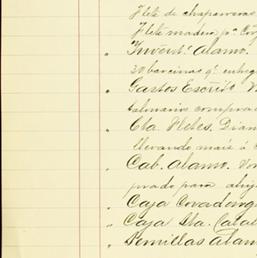 Flete de chaparreras
Flete madera pa. Cov
" Invent. Alamo.
30 barcinas qe. entreg
" Gastos Escrito
Calmario compra
" Cta. Fletes, Diam
llevando maiz á
" Cab. Alamo. Vo
prado para abij
" Caja Covadong
" Caja Sta. Catal
" Semillas Alam